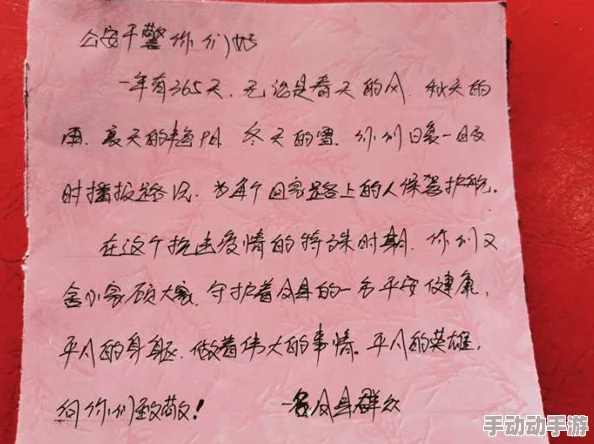 公安干警你们好
一年有365天.无论是春天的风.秋天的
雨.夏天的艳阳.冬天的雪.你们日复一日及
时播报路况.为每个回家路上的人保驾护航。
在这个抗击疫情的特殊时期.你们又
舍小家顾大家.守护着县的一方平安健康,
平凡的身躯.做着伟大的事情。平凡的英雄,
向你们致敬! 一名县群众
手动动手游